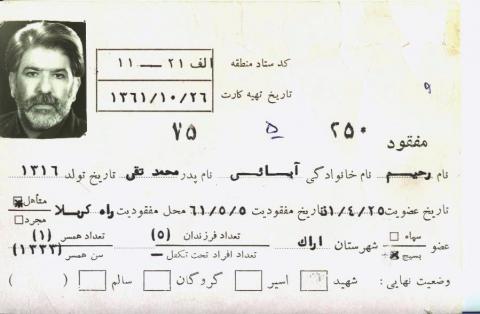 کد ستاد منطقه الف ۲۱ — ۱۱
تاریخ تهیه کارت ۱۳۶۱/۱۰/۲۶
۹
مفقود ۲۵۰ ۵ ۷۵
نام رحیم نام خانوادگی آبائی نام پدر محمد تقی تاریخ تولد ۱۳۱۶
تاریخ عضویت ۶۱/۴/۲۵ تاریخ مفقودیت ۶۱/۵/۵ محل مفقودیت راه کربلا متأهل مجرد
عضو سپاه بسیج شهرستان اراك تعداد فرزندان (۵) تعداد افراد تحت تکفل — تعداد همسر (۱) سن همسر (۱۳۳۳)
وضعیت نهایی: شهید اسیر گروگان سالم ( )